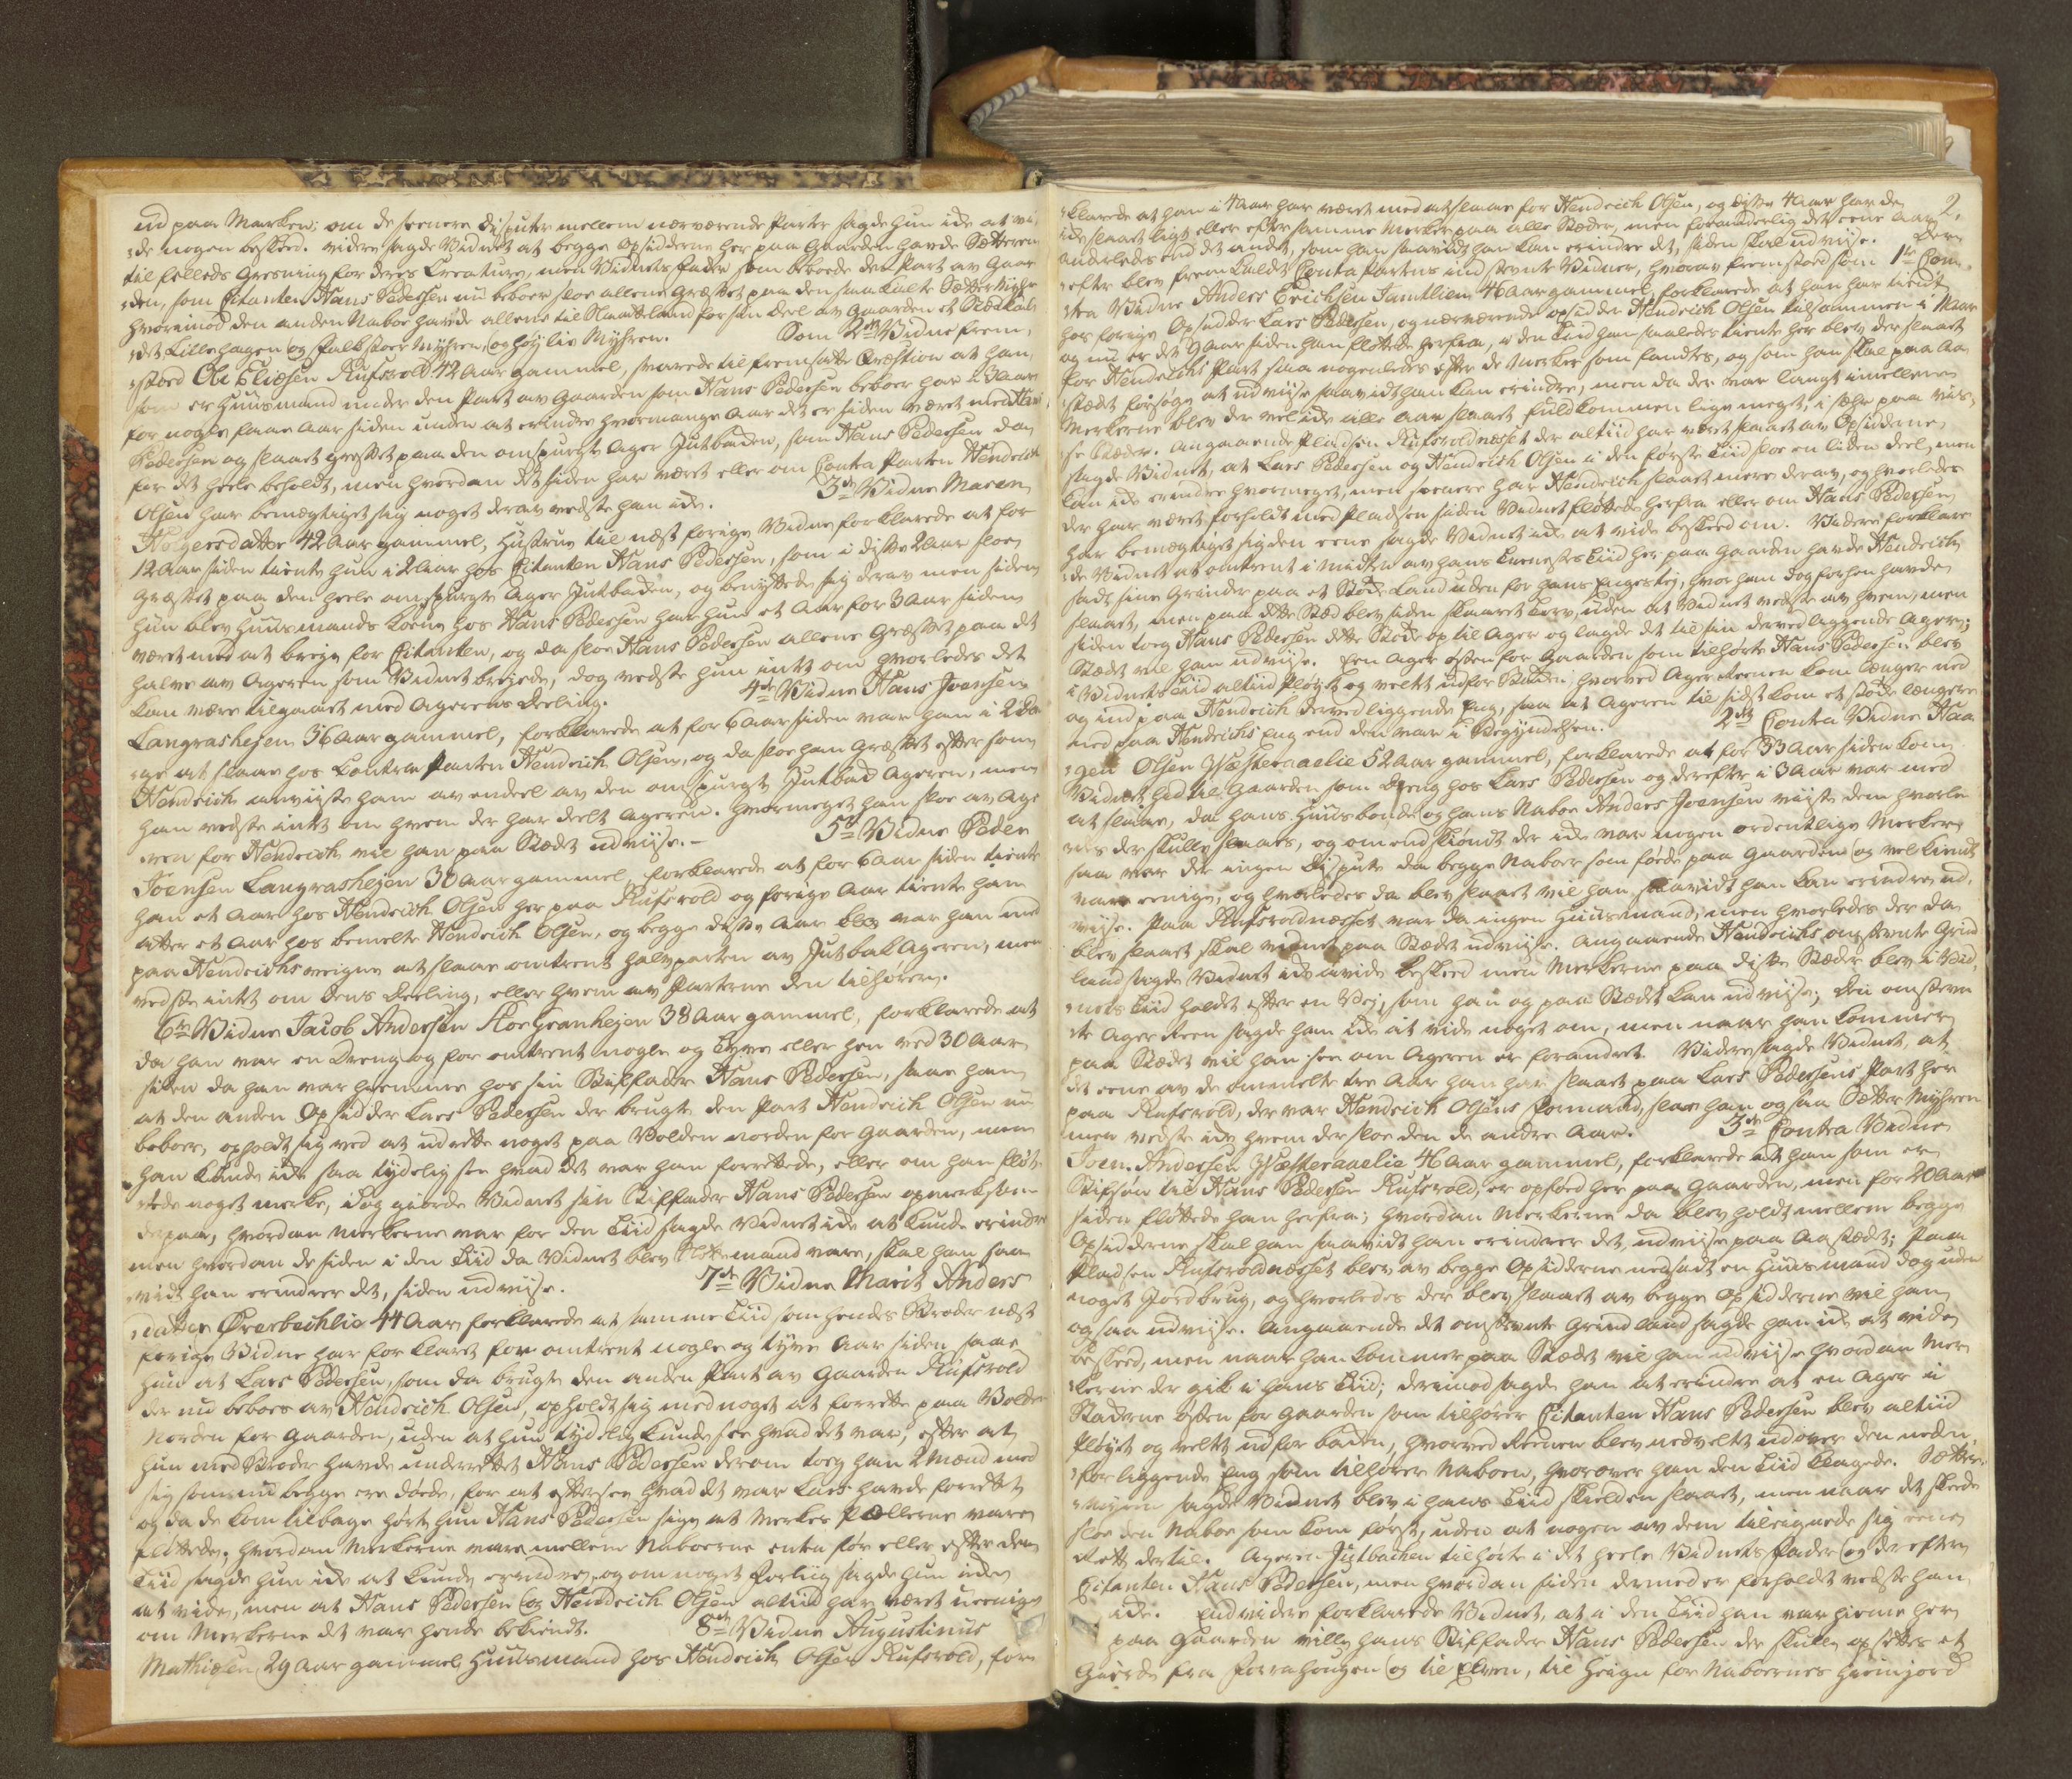 ud paa Marken; om de seenere Disputer mellem nærværende Parter sagde hun ide at vi-
de nogen beskeed. videre sagde Vidnet at begge Opsidderne her paa Gaarden havde Sætteren
til fælleds Græsning for deres Creature, men Vidnets Fader som beboede den Part av Gaar
den, som Citanten Hans Pedersen nu beboer sloe allene Græsset paa den saa kaldte Sætter Myhr
hvorimod den anden Naboe havde allene til Slaatteland for sin Deel av Gaarden et Sted kal-
det Lillehagen og Myhren, og Myhren. Som 2det Vidne frem,
stoed Ole Eliæsen Rufsvold 42 Aar gammel, svarede til fremsatte Qvæstion at han
som er Huusmand under den Part av Gaarden som Hans Pedersen beboer har i 3 Aar
for nogle faae Aar siden uden at erindre hvormange Aar det er siden været med Hans
Pedersen og slaaet Græsset paa den omspurgte Ager Jutbaden, som Hans Pedersen da
før det heele beholdt, men hvordan det siden har været eller om Contra Parten Hendrich
Olsen har bemægtiget sig noget derav vedste han ide. 3de Vidne Maren
Holgersdatter 42 Aar gammel, Hustrue til næst forige Vidne forklarede at for
12 Aar siden tiente hun i 2 Aar hos Citanten Hans Pedersen, som i disse 2 Aar sloe
Græsset paa den heele omspurgte Ager Jutbaden, og benyttede sig derav men siden
hun blev Huusmands Kone hos Hans Pedersen har hun et Aar for 3 Aar siden
været med at berge for Citanten, og da sloe Hans Pedersen allene Græsset paa det
halve av Ageren som Vidnet bergede, dog vedste hun intet om hvorledes det
kan være tilgaaet med Agerens Deeling. 4de Vidne Hans Joensen
Langrashejen 36 Aar gammel, forklarede at for 6 Aar siden var han i 2 Da
ge at slaae hos Contra Parten Hendrich Olsen, og da sloe han Græsset efter som
Hendrich anviiste ham av endeel av den omspurgte Jutbad Ageren, men
han vedste intet om hvem der har deelt Ageren. Hvormeget han sloe av Age
ren for Hendrich vil han paa Stædet udviise. - 5te Vidne Peder
Joensen Langrashejen 30 Aar gammel, forklarede at for 6 Aar siden tiente
han et Aar hos Hendrich Olsen her paa Rufsvold og forige Aar tiente han
atter et Aar hos bemelte Hendrich Olsen, og begge disse Aar var han med
paa Hendrichs veigne at slaae omtrent halvparten av Jutbak Ageren, men
vedste intet om dens Deeling, eller hvem av Parterne den tilhører.
6te Vidne Jacob Andersen Storgranhejen 38 Aar gammel, forklarede at
da han var en Dreng og for omtrent nogle og tyve eller hen ved 30 Aar
siden da han var hiemme hos sin Stiffader Hans Pedersen, saae han
at den anden Opsidder Lars Pedersen der brugte den Part Hendrich Olsen nu
beboer, opholdt sig ved at udrette noget paa Volden norden for Gaarden, men
han kunde ide saa tydelig see hvad det var han forrettede, eller om han flyt-
tede noget merke, dog giorde Vidnet sin Stiffader Hans Pedersen opmerksom
derpaa, hvordan Merkerne var for den Tiid sagde Vidnet ide at kunde erindre
men hvordan de siden i den Tiid da Vidnet blev mand vare, skal han saa
vidt han erindrer det, siden udviise. 7de Vidne Marit Anders
datter Øverbechlie 44 Aar forklarede at samme Tiid som hendes Broder næst
forige Vidne har forklaret for omtrent nogle og tyve Aar siden saae
hun at Lars Pedersen, som da brugte den anden Part av Gaarden Rufsvold
der nu beboes av Hendrich Olsen, opholdt sig med noget at forrette paa Volden
Norden for Gaarden, uden at hun tydelig kunde see hvad det var, efter at
hun med Broder havde underrettet Hans Pedersen derom tog han 2 Mænd med
sig som nu begge ere døde, for at eftersee hvad det var Lars havde forrettet
og da de kom tilbage hørte hun Hans Pedersen sige at Merkes Pællerne vare
flöttede. Hvordan Merkerne vare mellem Naboerne enten før eller efter den
Tiid sagde hun ide at kunde erindre, og om noget Forliig sagde hun ide
at vide, men at Hans Pedersen og Hendrich Olsen altiid har været ueenige
om Merkerne det var hende bekiendt. 8de Vidne Augustinus
Mathisen 29 Aar gammel Huusmand hos Hendrich Olsen Rufsvold, for-
2.
klarede at han i 4 Aar har været med at slaae for Hendrich Olsen, og disse 4 Aar har de
ide slaaet ligt eller efter samme Merker paa alle Stæder, men foranderlig det eene Aar
anderledes end det andet, som han saavidt han kan erindre det, siden skal udviise. Der-
efter blev fremkaldt Contra Partens indstevnte Vidner, hvorav fremstoed som 1te Con-
tra Vidne Anders Erichsen Jamtlien 46 Aar gammel, forklarede at han har tient
hos forige Opsidder Lars Pedersen, og nærværende Opsidder Hendrich Olsen tilsammen i Aar
og nu er det 9 Aar siden han flöttede herfra, i den Tiid han saaledes tiente her blev der slaaet
for Hendrichs Part saa nogenledes efter de Merker som fandtes, og som han skal paa Aa
stædet forsøge at udviise saavidt han kan erindre, men da der var langt imellem
Merkerne blev der vel ide alle Aar slaaet fuldkommen lige meget, i sær paa vis-
se Stæder. Angaaende Pladsen Rufsvoldnæsset der altiid har været slaaet av Opsidderne
sagde Vidnet, at Lars Pedersen og Hendrich Olsen i den første Tiid sloe en liden deel, men
kan ide erindre hvormeget, men seenere har Hendrich slaaet mere derav, og hvorledes
der har været forholdt med Pladsen siden Vidnet flöttede herfra eller om Hans Pedersen
har bemægtiget sig den eene sagde Vidnet ide at vide beskeed om. Videre forklare
de Vidnet at omtrent i midten av hans Tienestes Tiid her paa Gaarden havde Hendrich
sadt sine Grinder paa et Støde Land uden for hans Engestej, hvor han dog forhen havde
slaaet, men paa dette Sted blev siden skaaret Torv, uden at Vidnet vedste av hvem, men
siden toeg Hans Pedersen dette Støde op til Ager og lagde det til sin derved liggende Ager;
Stædet vil han udviise. Een Ager østen for Gaarden som tilhørte Hans Pedersen blev
i Vidnets Tiid altiid pløyet og veltet udfor Baden, hvorved Ager Reenen kom længer ned
og ind paa Hendrich derved liggende Eng, saa at Ageren til sidst kom et støde længere
ned paa Hendrichs Eng end den var i Begyndelsen. 2det Contra Vidne Haa
gen Olsen Wæsteraaelie 52 Aar gammel, forklarede at for 33 Aar siden kom
Vidnet hid til Gaarden som Dreng hos Lars Pedersen og derefter i 3 Aar var med
at slaae, da hans Huusbonde og hans Naboe Anders Joensen viiste dem hvorle
des der skulle slaaes, og omendskiøndt der ide var nogen ordentlige Merker
saa var der ingen Dispute da begge Naboer som føde paa Gaarden og vel kiendt
vare eenige, og hvorledes da blev slaaet vil han saavidt han kan erindre ud-
viise. Paa Rufsvoldnæsset var da ingen Huusmand, men hvorledes der da
blev slaaet skal Vidnet paa Stædet udviise. Angaaende Hendrichs omstevnte Grind
land sagde Vidnet ide at vide beskeed men Merkerne paa disse Stæder blev i Vid-
nets Tiid holdt efter en Vej, som han og paa Stædet kan udviise; Den omstevn
te Ager Reen sagde han ide at vide noget om, men naar han kommer
paa Stædet vil han see om Ageren er forandret. Videre sagde Vidnet, at
det eene av de ommelte tre Aar han har slaaet paa Lars Pedersens Part her
paa Rufsvold, der var Hendrich Olsens Formand, sloe han og saa Sætter Myhren
men vedste ide hvem der sloe den de andre Aar. 3de Contra Vidne
Joen Andersen Wæsteraaelie, 46 Aar gammel, forklarede at han som er
Stifsøn til Hans Pedersen Rufsvold, er opfød her paa Gaarden, men for 20 Aar
siden flöttede han herfra; hvordan Merkerne da blev holdt mellem begge
Opsidderne skal han saavidt han erindrer det, udviise paa Aastædet; Paa
Pladsen Rufsvoldnæsset blev av begge Opsidderne nedsadt en Huusmand dog uden
noget Jordbrug, og hvorledes der blev slaaet av begge Opsidderne vil han
og saa udviise. Angaaende det omstevnte Grindland sagde han ide at vide
beskeed, men naar han kommer paa Stædet vil han udviise hvordan Mer-
kerne der gik i hans Tiid; derimod sagde han at erindre at en Ager i
Raderne østen for Gaarden som tilhører Citanten Hans Pedersen blev altiid
pløyet og veltet udfor baden, hvorved Reenen blev nedveltet udover den neden-
for liggende Eng som tilhører Naboen, hvorover han den Tiid klagede. Sætter-
myren sagde Vidnet blev i hans Tiid skielden slaaet, men naar det skeede
sloe den Naboe som kom først, uden at nogen av dem tileignede sig eene
Rett dertil. Ageren Jutbachen tilhørte i det heele Vidnets Fader og derefter
Citanten Hans Pedersen, men hvordan siden dermed er forholdt vedste han
ide. Endvidere forklarede Vidnet, at i den Tiid han var hieme her
paa Gaarden ville hans Stiffader Hans Pedersen der skulle opsettes et
Gierde fra og til Elven, til Heign for Naboernes Hiemjord